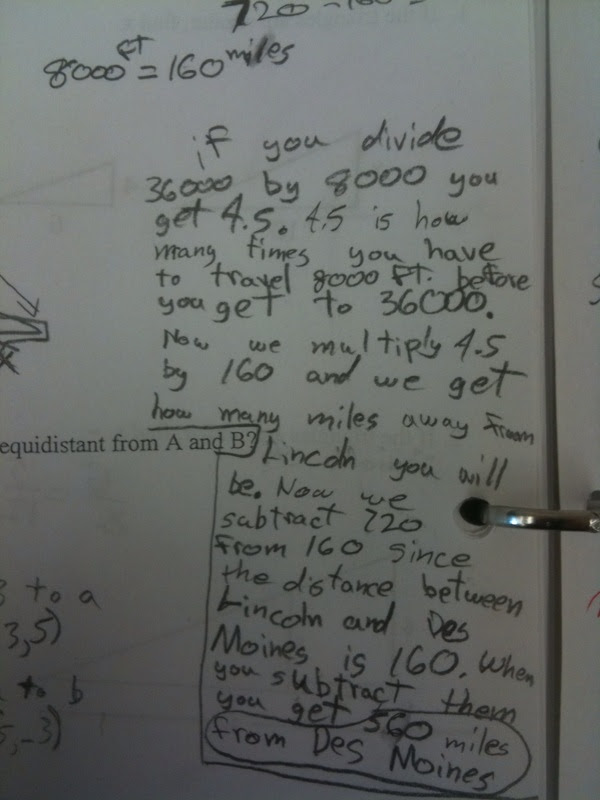 720 - 160 =
8000 ft = 160 miles
if you divide
36000 by 8000 you
get 4.5. 4.5 is how
many times you have
to travel 8000 ft. before
you get to 36000.
Now we multiply 4.5
by 160 and we get
how many miles away from
equidistant from A and B?
Lincoln you will
be. Now we
subtract 720
from 160 since
the distance between
Lincoln and Des
Moines is 160. When
you subtract them
you get 560 miles
from Des Moines
to a
3,5)
to b
5,-3)